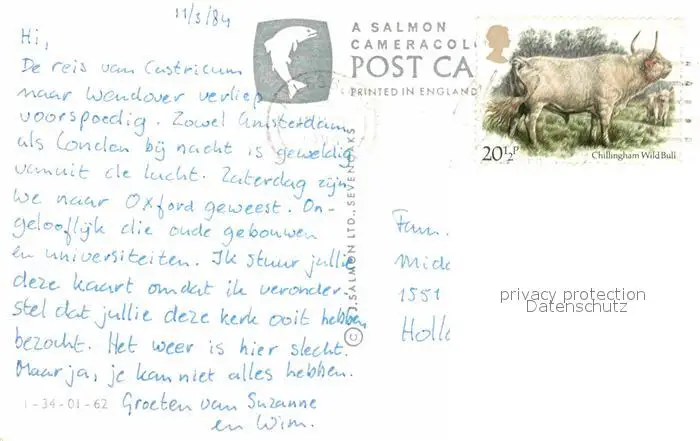 11/3/84
Hi,
De reis van Castricum
naar Wendover verliep
voorspoedig. Zowel Amsterdam
als Londen bij nacht is geweldig
vanuit de lucht. Zaterdag zijn
we naar Oxford geweest. On-
gelooflijk die oude gebouwen
en universiteiten. Ik stuur jullie
deze kaart omdat ik veronder-
stel dat jullie deze kerk ooit hebben
bezocht. Het weer is hier slecht.
Maar ja, je kan niet alles hebben.
1-34-01-62 Groeten van Suzanne
en Wim.
A SALMON
CAMERACOLO
POST CA
PRINTED IN ENGLAND
© J. SALMON LTD., SEVENOAKS
20½P
Chillingham Wild Bull
Fam.
Midd
1551
Holla
privacy protection
Datenschutz